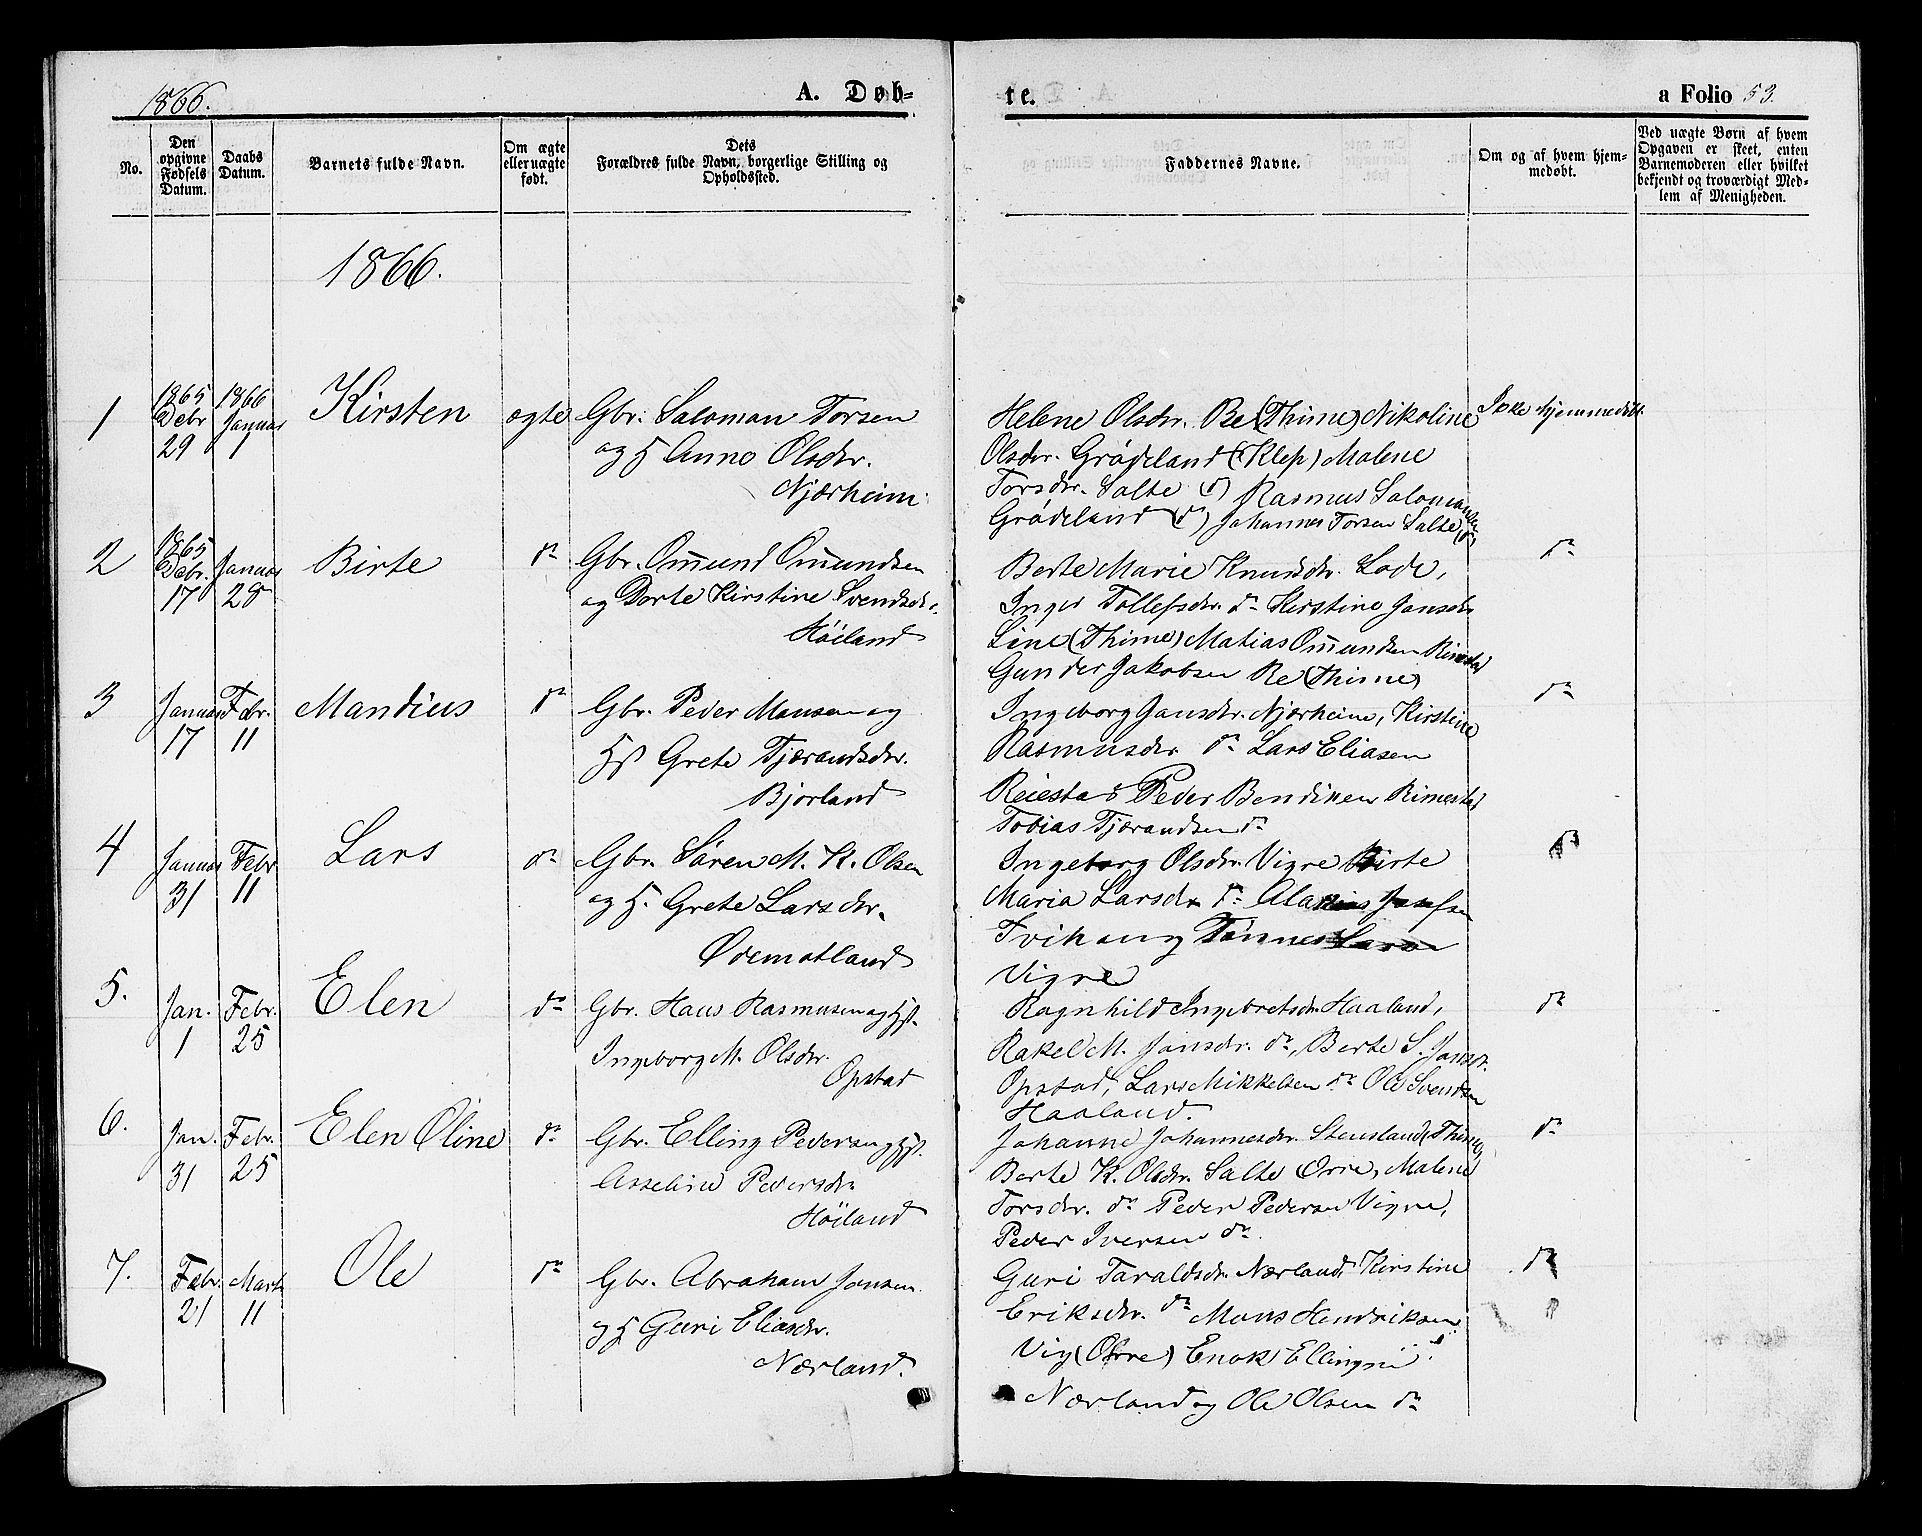 1866.
A. Døb-
te.
a Folio 53.
No.
Den opgivne Fødsels Datum.
Daabs Datum.
Barnets fulde Navn.
Om ægte eller uægte født.
Dets Forældres fulde Navn, borgerlige Stilling og Opholdssted.
Faddernes Navne.
Om og af hvem hjemmedøbt.
Ved uægte Børn af hvem Opgaven er skeet, enten Barnemoderen eller hvilket bekjendt og troværdigt Medlem af Menigheden.
1866.
1
1865 Debr 29
1866 Januar 1
Kirsten
ægte
Gbr. Saloman Torsen
og H Anna Olsdtr.
Njærheim
Helene Olsdtr. Re (Thime) Nikoline
Olsdtr. Grödeland (Klep) Malene
Torsdtr. Salte (d) Rasmus Salomansen
Grödeland (do) Johannes Torsen Salte (do)
Ikke hjemmedöbt
2
1865 Debr. 17
Januar 28
Birte
do
Gbr. Om̄und Om̄undsen
og Dorte Kirstine Svendsdtr.
Höiland
Berte Marie Knudsdtr. Lode,
Inger Tollefsdtr. do Kirstine Jansdtr
Line (Thime) Matias Om̄undsen Rimestad
Gunder Jakobsen Re (Thime)
do
3
Januar 17
Febr. 11
Mandius
do
Gbr. Peder Monsen og
H Grete Tjerandsdtr.
Bjorland
Ingeborg Jansdtr. Njærheim, Kirstine
Rasmusdtr do Lars Eliasen
Reiestad Peder Bendiksen Rimestad
Tobias Tjerandsen do
do
4
Januar 31
Febr 11
Lars
do
Gbr. Sören M. K. Olsen
og H. Grete Larsdtr.
Ødemotland
Ingeborg Olsdtr. Vigre Birte
Maria Larsdtr do
Tvihaug Tönnes Larsen
Vigre
do
5.
Jan. 1
Febr. 25
Elen
do
Gbr. Hans Rasmusen og Hst.
Ingeborg M. Olsdtr.
Opstad
Ragnhild Ingebretsdtr Haaland,
Rakel M. Jonsdtr. do, Berte S. Jonsdtr.
Opstad, Lars Mikkelsen do Ole Svendsen
Haaland.
do
6.
Jan. 31
Febr. 25
Elen Oline
do
Gbr. Elling Pedersen og Hst.
Asseline Pedersdtr
Höiland
Johanne Johannesdtr. Stensland (Thime),
Berte K. Olsdtr. Salte Orre, Malene
Torsdtr. do Peder Pedersen Vigre,
Peder Iversen do.
do
7.
Febr. 21
Marts 11
Ole
do
Gbr. Abraham Jonsen
og H Guri Eliasdtr.
Nærland.
Guri Taraldsdtr. Nærland, Kirstine
Eriksdtr. do Mons Hendriksen
Vig (Orre) Enok Ellingsen
Nærland og Ole Olsen do
do